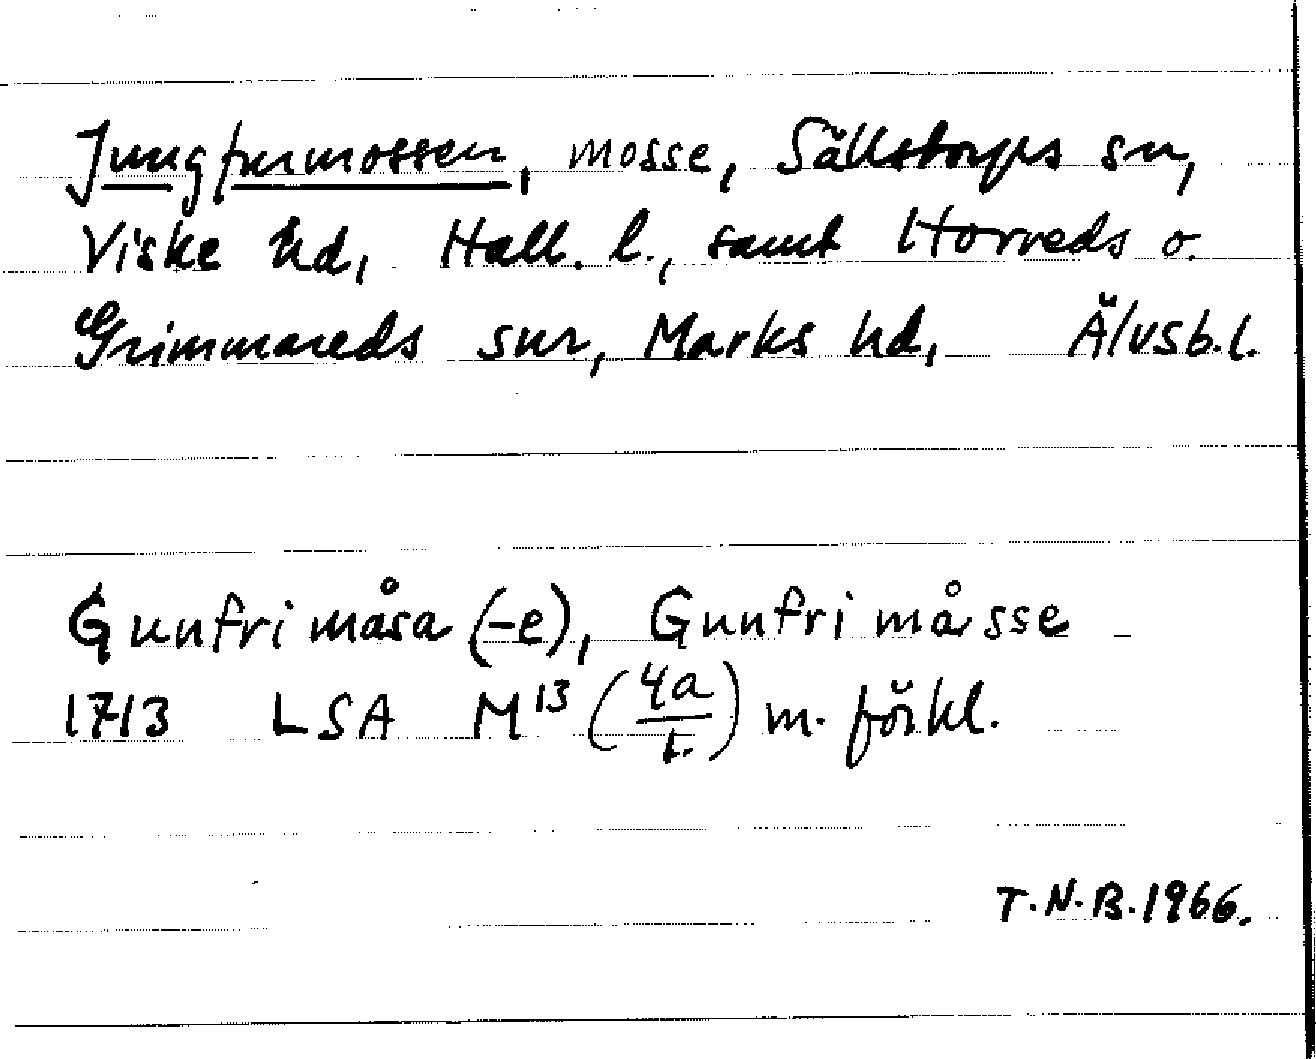 Jungfrumossen, mosse, Sällstorps sn,
Viske hd, Hall. l., samt Horreds o.
Grimmareds snr, Marks hd, Älvsb.l.
Gunfri måsa (-e), Gunfri måsse
1713 LSA M13 (4a/1.) m. förkl.
T.N.B.1966.